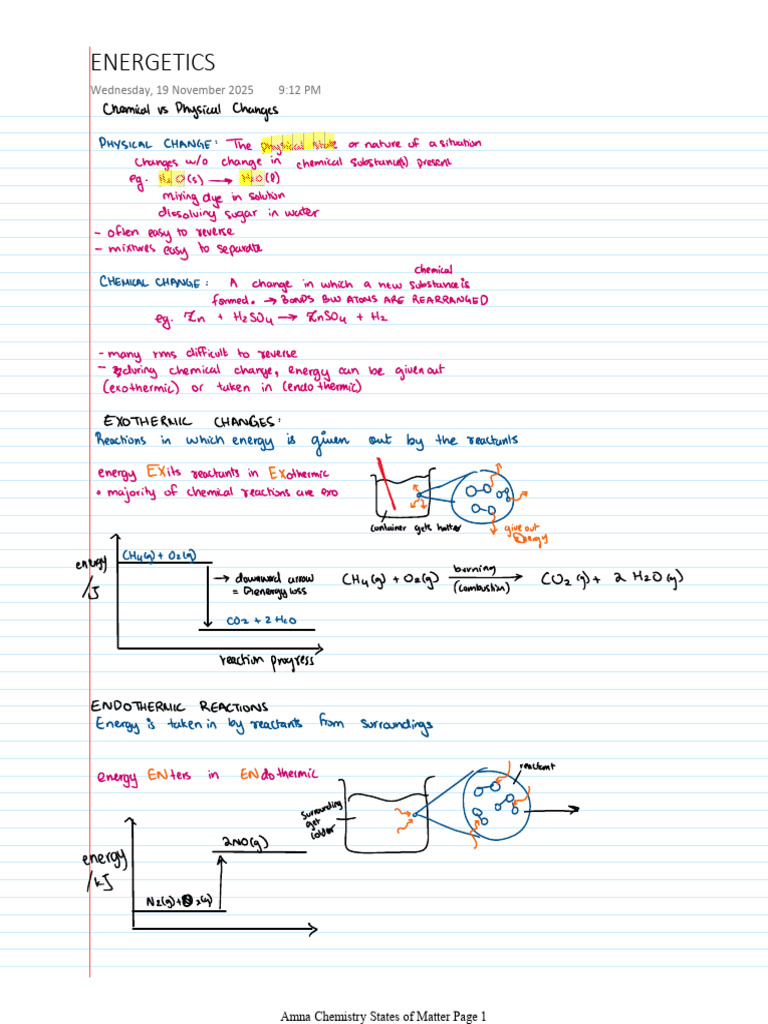 ENERGETICS
Wednesday, 19 November 2025 9:12 PM
Chemical vs Physical Changes
PHYSICAL CHANGE: The physical state or nature of a situation
changes w/o change in chemical substance(s) present
eg. H2O(s) → H2O(l)
mixing dye in solution
dissolving sugar in water
- often easy to reverse
- mixtures easy to separate
chemical
CHEMICAL CHANGE: A change in which a new substance is
formed. → BONDS BW ATOMS ARE REARRANGED
eg. Zn + H2SO4 → ZnSO4 + H2
- many rxns difficult to reverse
- during chemical change, energy can be given out
(exothermic) or taken in (endothermic)
EXOTHERMIC CHANGES:
Reactions in which energy is given out by the reactants
energy EXits reactants in EXothermic
• majority of chemical reactions are exo
container gets hotter
give out
energy
energy
/J
CH4(g) + O2(g)
→ downward arrow
= energy loss
CO2 + 2H2O
reaction progress
CH4(g) + O2(g) burning (combustion) → CO2(g) + 2H2O(g)
ENDOTHERMIC REACTIONS
Energy is taken in by reactants from surroundings
energy ENters in ENdothermic
surrounding
get
colder
reactant
energy
/kJ
2NO(g)
N2(g) + O2(g)
Amna Chemistry States of Matter Page 1